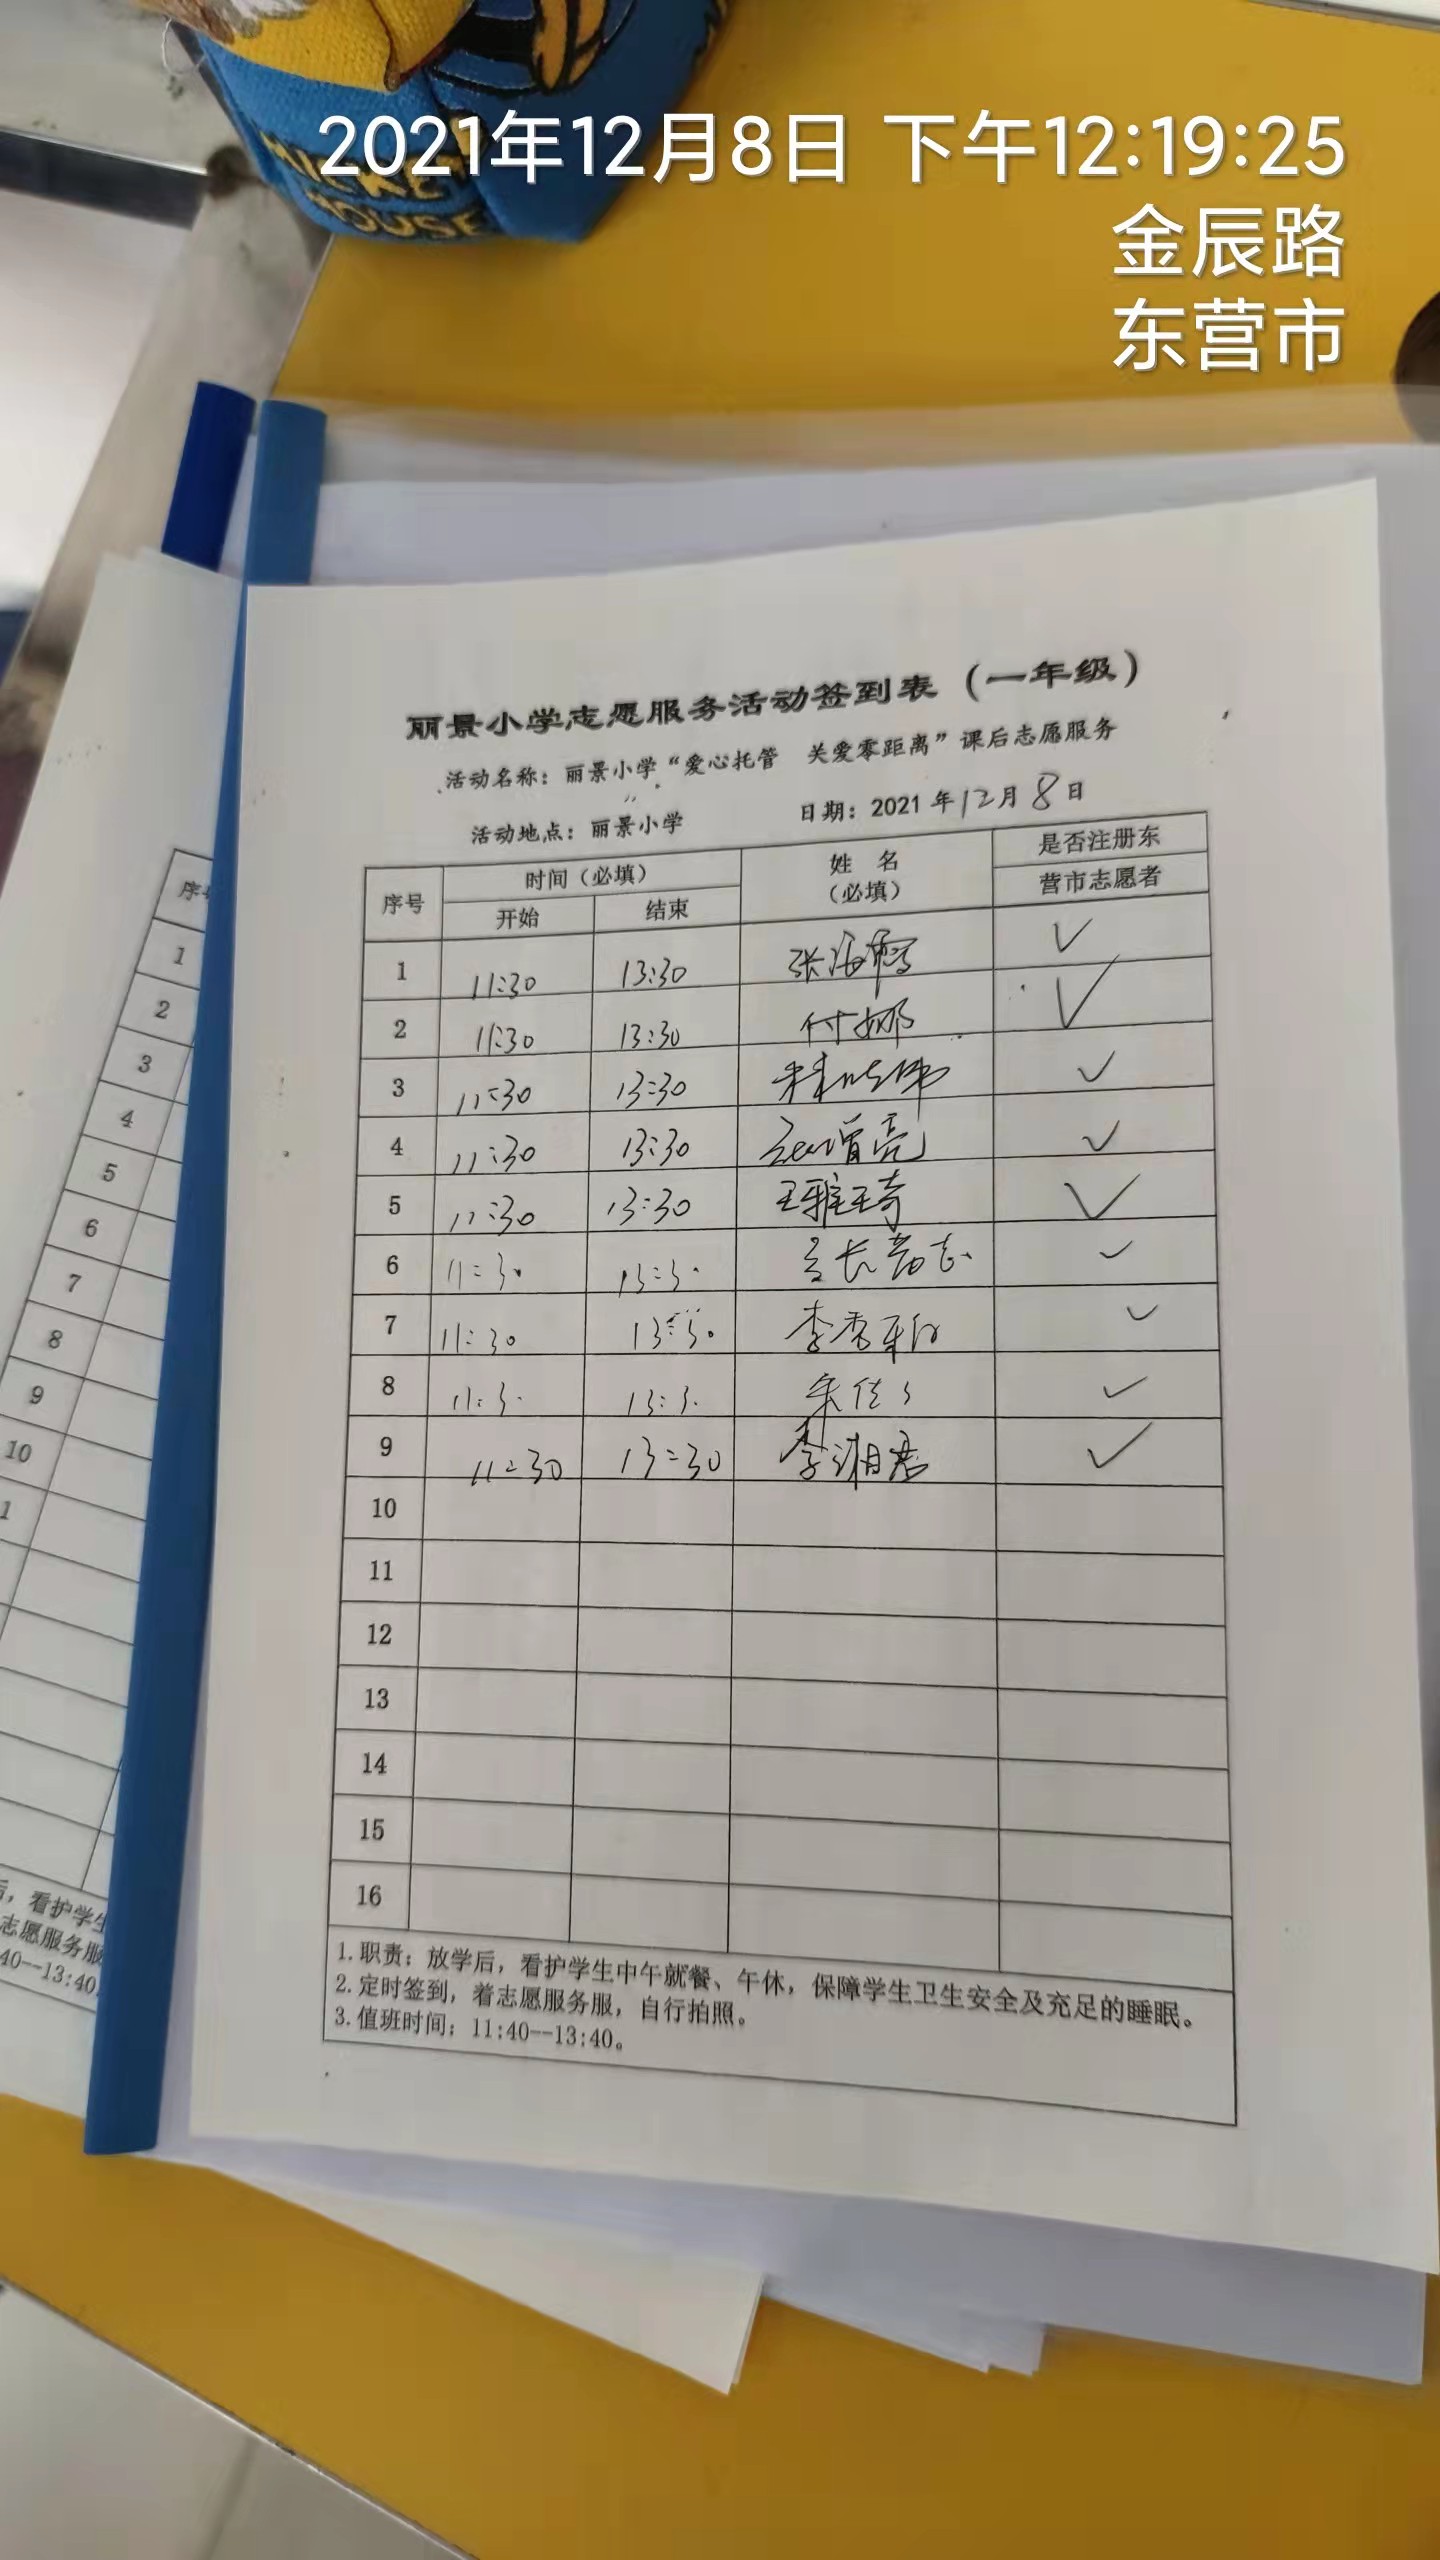 2021年12月8日 下午12:19:25
金辰路
东营市
MICKEY
MOUSE
丽景小学志愿服务活动签到表（一年级）
活动名称：丽景小学“爱心托管 关爱零距离”课后志愿服务
活动地点：丽景小学 日期：2021年12月8日
序号 时间（必填） 姓 名 是否注册东
开始 结束 （必填） 营市志愿者
1 11:30 13:30 ✓
2 11:30 13:30 付娜 ✓
3 11:30 13:30 ✓
4 11:30 13:30 ✓
5 11:30 13:30 王雅琦 ✓
6 11:30 13:30 ✓
7 11:30 13:30 ✓
8 11:30 13:30 ✓
9 11:30 13:30 李湘君 ✓
10
11
12
13
14
15
16
1.职责：放学后，看护学生中午就餐、午休，保障学生卫生安全及充足的睡眠。
2.定时签到，着志愿服务服，自行拍照。
3.值班时间：11:40--13:40。
序号
1
2
3
4
5
6
7
8
9
10
1
，看护学生
志愿服务服
40--13:40